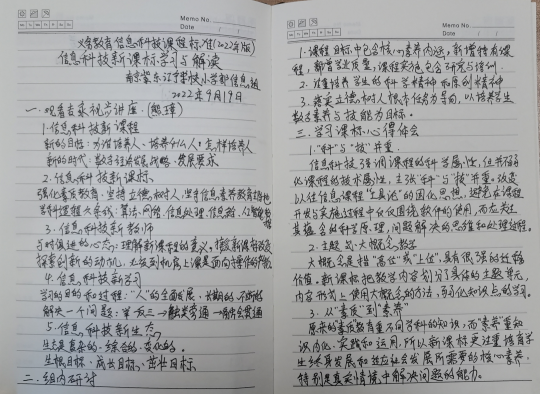 Memo No.
Date / /
义务教育信息科技课程标准(2022年版)
信息科技新课标学习与解读
2022年9月19日
一.观看吉泰视频讲座.(熊璋)
1.信息科技新课程
新的目标:为谁培养人.培养什么人.怎样培养人
新的时代:数字经济发展战略.发展要求
2.信息科技新课标.
强化素质教育.坚持立德树人.坚持信息素养教育
学科逻辑六条线:算法.网络.信息处理.信息安全.人工智能
3.信息科技新教师
与时俱进的心态.理解新课程的意义.
探索创新的动机.
4.信息科技新学习
学习的目的和过程:"人"的全面发展.长期的.不断的
解决一个问题:举一反三→触类旁通→融会贯通
5.信息科技新生态
生态是复杂的.综合的.变化的.
生根目标.成长目标.茁壮目标
二.组内研讨
Memo No.
Date / /
1.课程目标中包含核心素养内涵,新增特有课
程,都有学业质量,课程实施包含研究与培训.
2.注重培养学生的科学精神和原创精神
3.落实立德树人根本任务为导向,以培养学生
数字素养与技能为目标.
三.学习课标心得体会
1."科"与"技"并重.
信息科技强调课程的科学属性,但并弱
化课程的技术属性,主张"科"与"技"并重.改变
以往信息课程"工具论"的固化思想,避免在课程
开发与实施过程中仅仅围绕软件的使用,而忽失
其蕴含的科学原理,问题解决的思维和处理过程.
2.主题式.大概念教学
大概念是指"高位"、"上位",具有很强的迁移
价值.新课标把教学内容划分了具体的主题单元,
内容形式上使用大概念的方法,弱化知识点的学习.
3.从"素质"到"素养"
原来的素质教育重不同学科的知识,而"素养"更知
识内化.实践和运用,所以新课标更注重培育学
生终身发展和适应社会发展所需要的核心素养.
特别是真实情境中解决问题的能力.